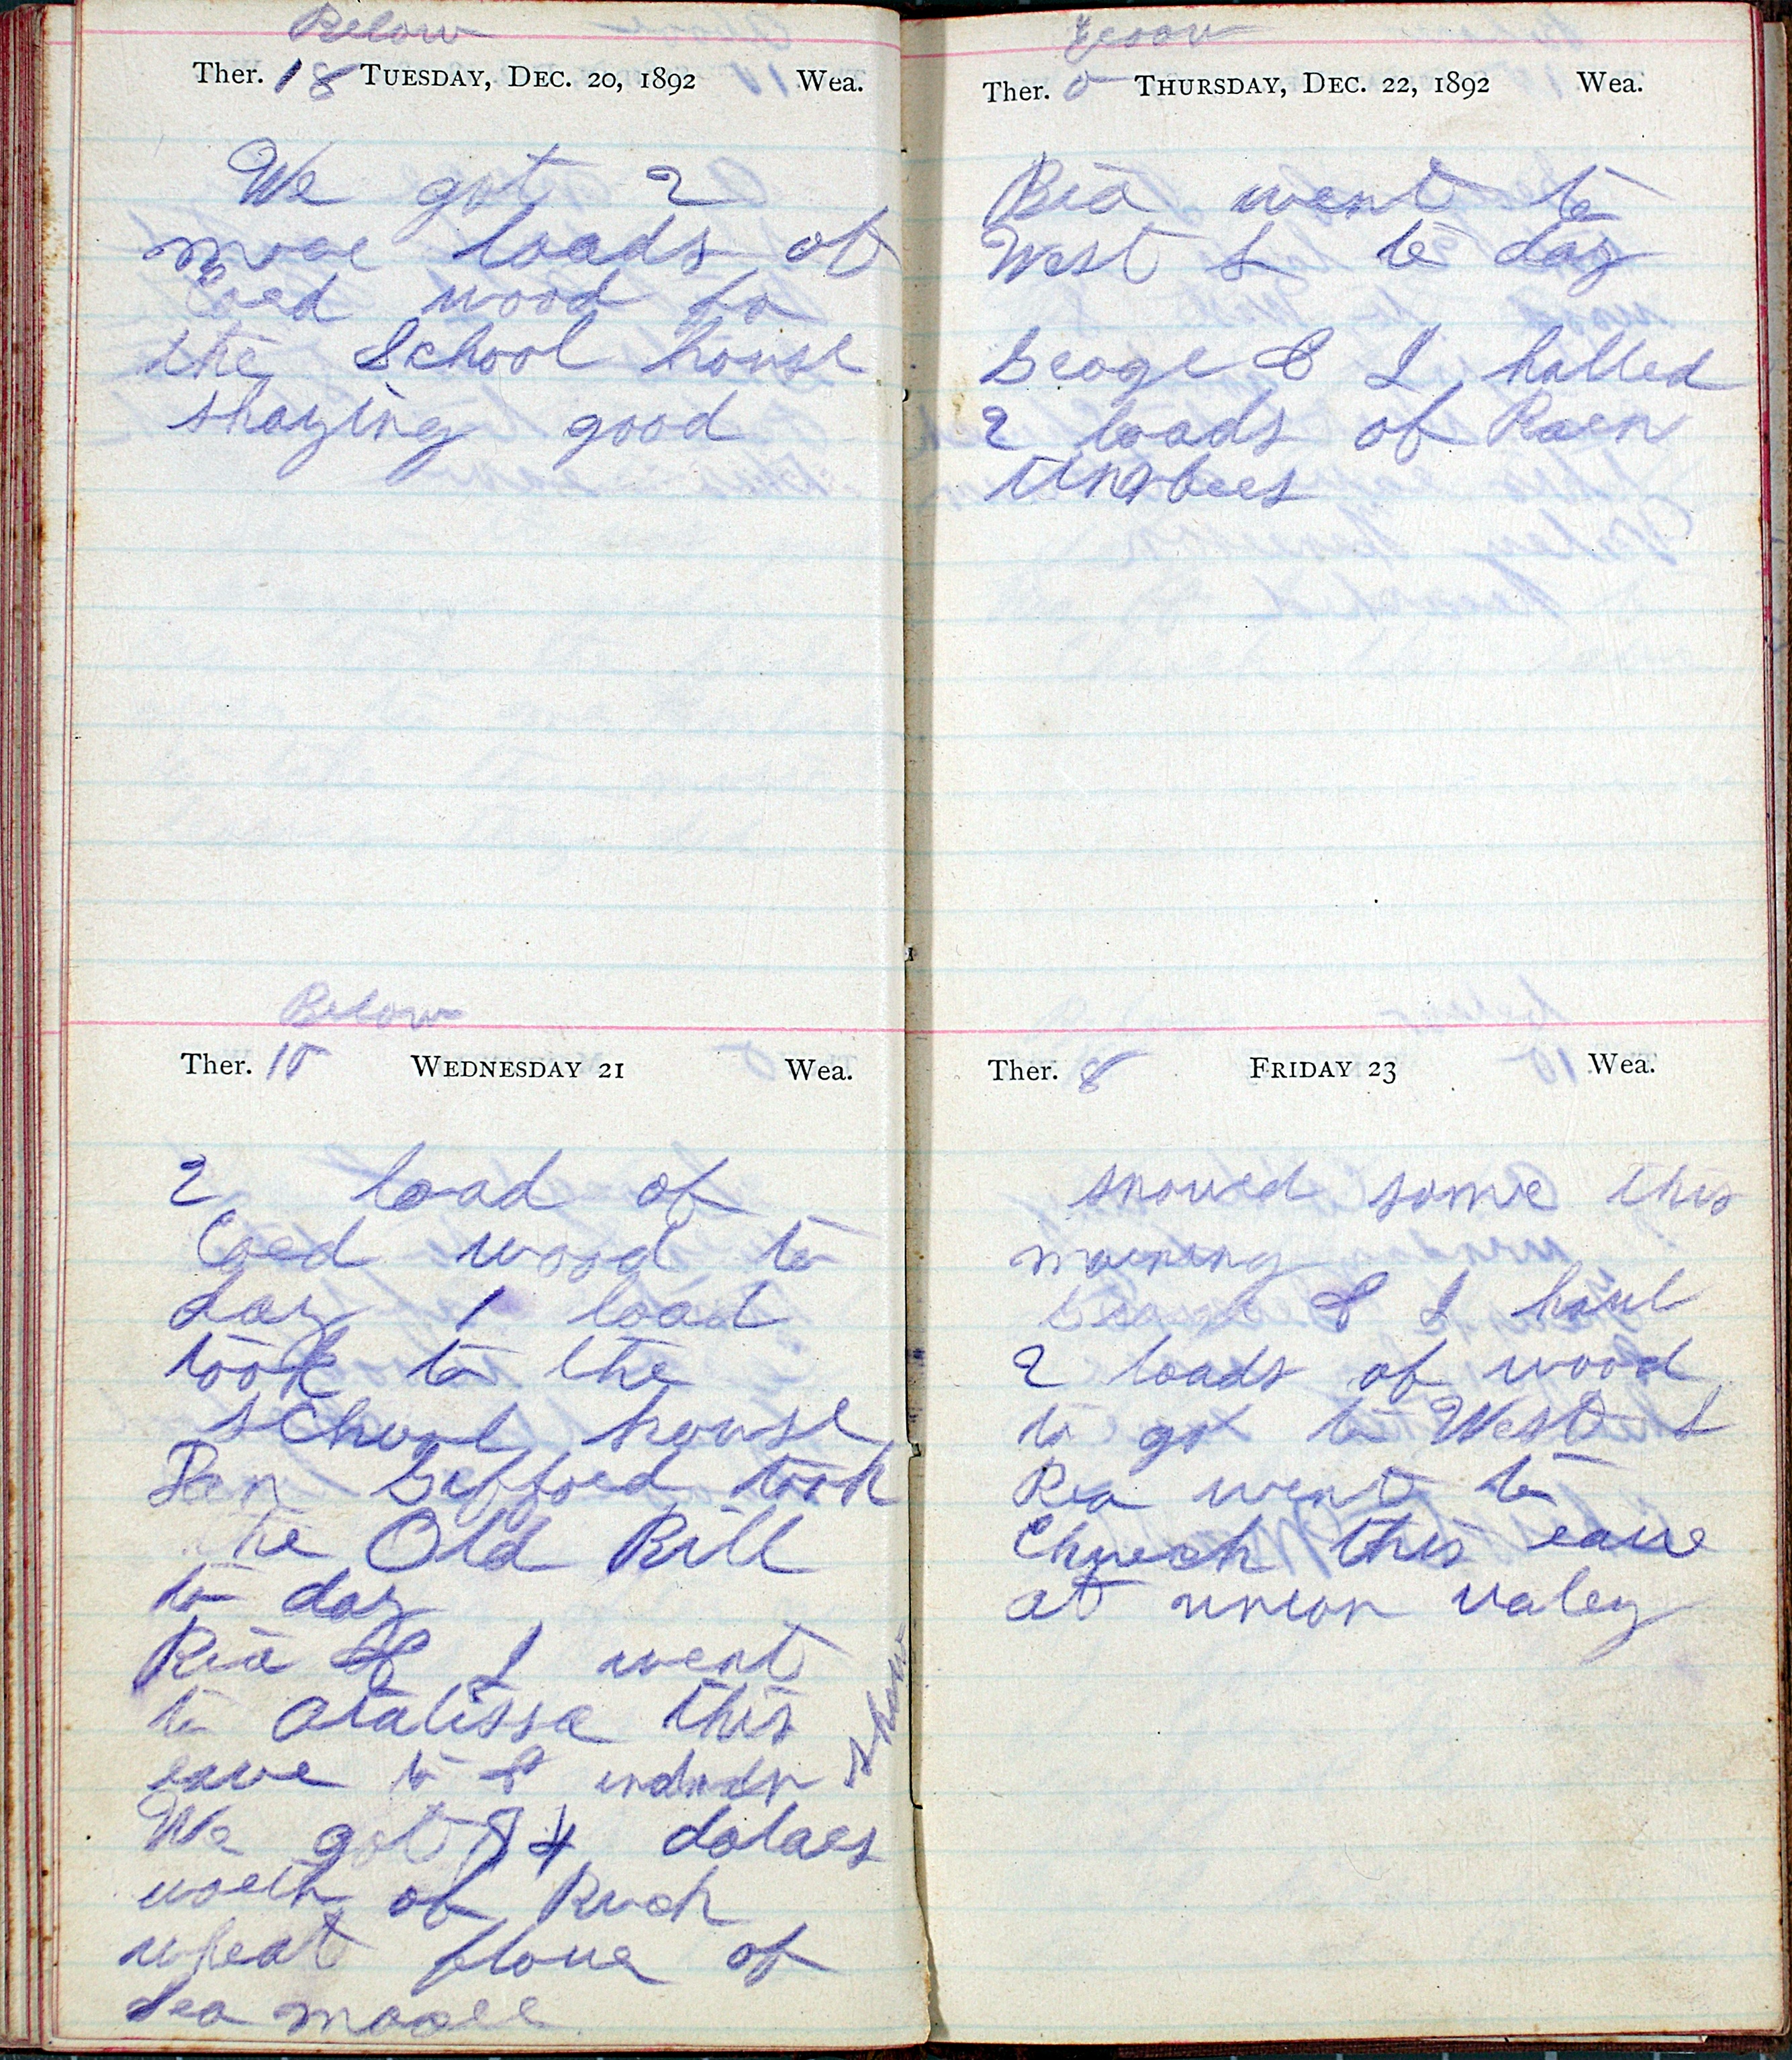 Below
Ther. 18 TUESDAY, DEC. 20, 1892 Wea.
We got 2
more loads of
Cord wood to
the School house
shaying good
Below
Ther. 10 WEDNESDAY 21 Wea.
2 load of
Cord wood to
day 1 load
took to the
school house
Dan Gifford took
he Old Bill
to day
Ria & I went
to Atalissa this
eave to &
We got 4 dolars
worth of Buck
wheat flour of
Moore
Ther. 0 THURSDAY, DEC. 22, 1892 Wea.
Ria went to
West L to day
Georgе & I halled
2 loads of Barn
timbers
Ther. 8 FRIDAY 23 Wea.
snowed some this
morning
George & I haul
2 loads of wood
to go to West L
Ria went to
Church this eave
at union valey